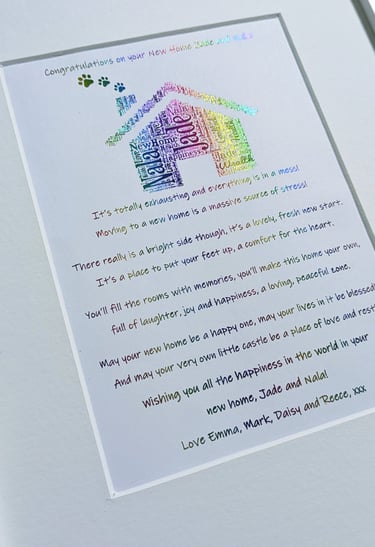 Congratulations on your New Home Jade and Nala
Nala
Jade
It's totally exhausting and everything is in a mess!
Moving to a new home is a massive source of stress!
There really is a bright side though, it's a lovely, fresh new start.
It's a place to put your feet up, a comfort for the heart.
You'll fill the rooms with memories, you'll make this home your own,
full of laughter, joy and happiness, a loving, peaceful zone.
May your new home be a happy one, may your lives in it be blessed
And may your very own little castle be a place of love and rest
Wishing you all the happiness in the world in your
new home, Jade and Nala!
Love Emma, Mark, Daisy and Reece, xxx